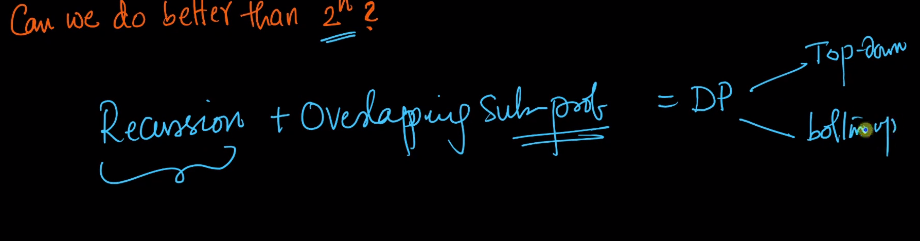 Can we do better than 2ⁿ ?
Recursion + Overlapping Sub-prob = DP
Top-down
bottom up